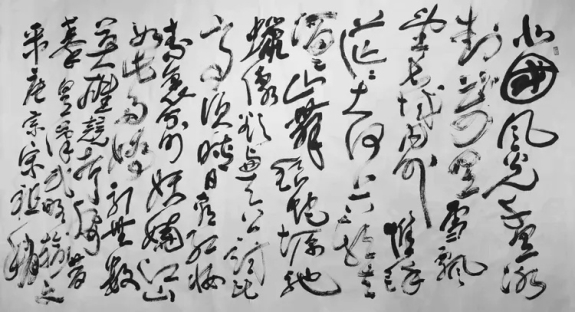 北国风光千里冰
封万里雪飘
望长城内外惟余
莽莽大河上下顿失
滔滔山舞银蛇原驰
蜡象欲与天公试比
高须晴日看红妆
素裹分外妖娆江山
如此多娇引无数
英雄竞折腰惜
秦皇汉武略输文
采唐宗宋祖稍